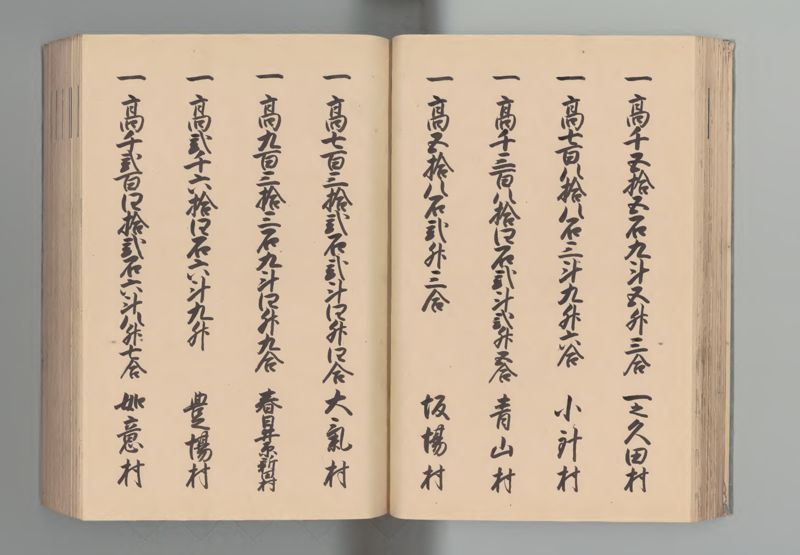 一 高千五拾五石九斗五升三合 一之久田村
一 高七百八拾八石三斗九升六合 小針村
一 高千三百八拾四石弐斗弐升五合 青山村
一 高五拾八石弐升三合 坂場村
一 高七百三拾弐石弐斗四升四合 大気村
一 高九百三拾三石九斗四升九合 春日井原新田村
一 高弐千六拾四石六斗九升 豊場村
一 高千弐百四拾弐石六斗八升七合 如意村